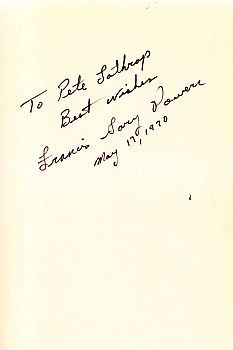 To Pete Lothrop
Best wishes
Francis Gary Powers
May 17, 1970